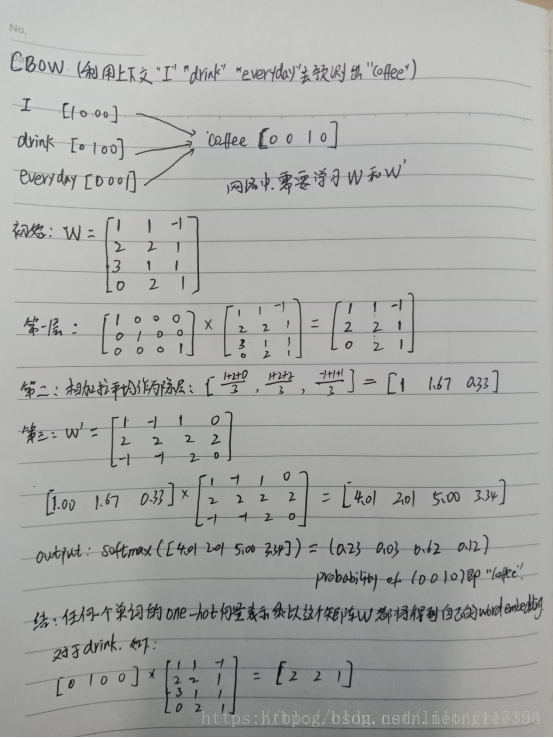 No.
CBOW (利用上下文 "I" "drink" "everyday" 去预测出 "coffee")
I [1 0 0 0]
drink [0 1 0 0]
everyday [0 0 0 1]
coffee [0 0 1 0]
网络中需要学习 W 和 W'
初始: W = [1 1 -1
2 2 1
3 1 1
0 2 1]
第一层: [1 0 0 0
0 1 0 0
0 0 0 1] × [1 1 -1
2 2 1
3 1 1
0 2 1] = [1 1 -1
2 2 1
0 2 1]
第二: 相加求平均作为隐层: [(1+2+0)/3, (1+2+2)/3, (-1+1+1)/3] = [1 1.67 0.33]
第三: W' = [1 -1 1 0
2 2 2 2
-1 -1 2 0]
[1.00 1.67 0.33] × [1 -1 1 0
2 2 2 2
-1 -1 2 0] = [4.01 2.01 5.00 3.34]
output: softmax([4.01 2.01 5.00 3.34]) = (0.23 0.03 0.62 0.12)
probability of (0 0 1 0) 即 "coffee".
结: 任何个单词的 one-hot 向量表示乘以这个矩阵W都将得到自己的 word embedding
对于 drink, 如下:
[0 1 0 0] × [1 1 -1
2 2 1
3 1 1
0 2 1] = [2 2 1]